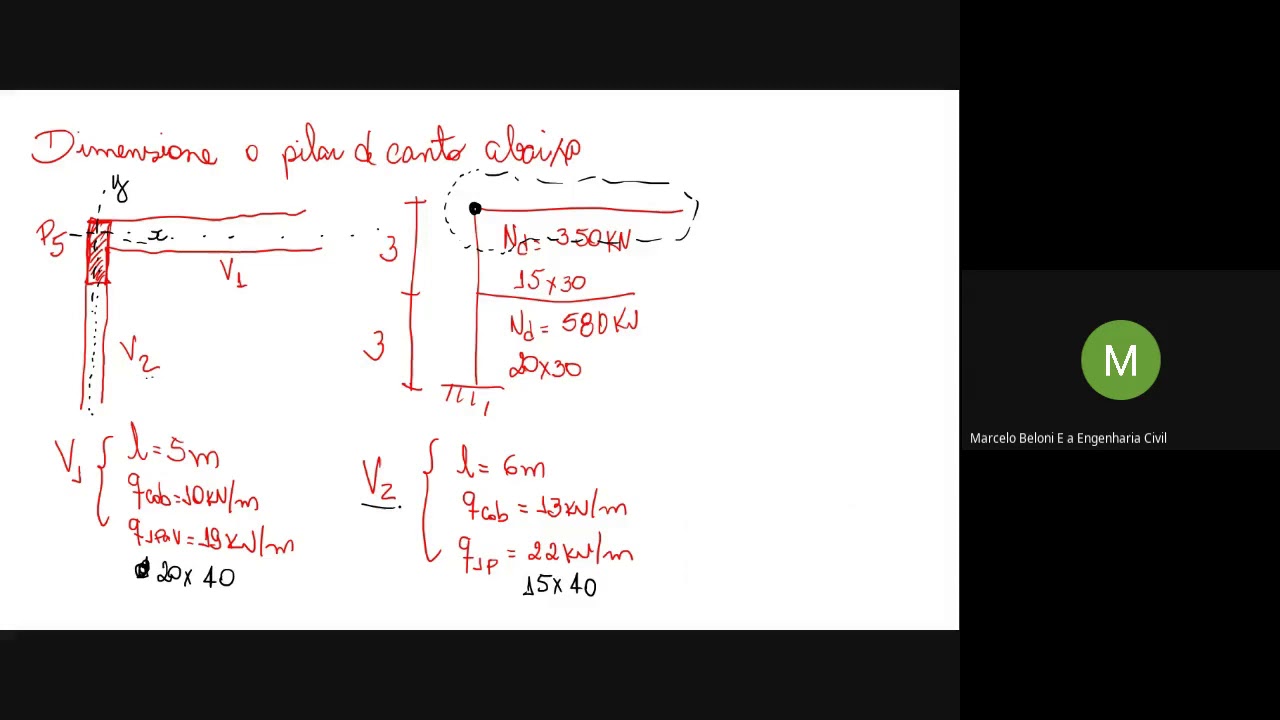 Dimensione o pilar de canto abaixo
y
P5
x
V1
V2
3
Nd= 350KN
15x30
3
Nd= 580KN
20x30
V1
l= 5m
qcob=10KN/m
q1Pav=19KN/m
20x40
V2
l= 6m
qcob = 13KN/m
q1P = 22KN/m
15x40
M
Marcelo Beloni E a Engenharia Civil